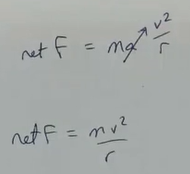 net F = ma v²/r
net F = mv²/r